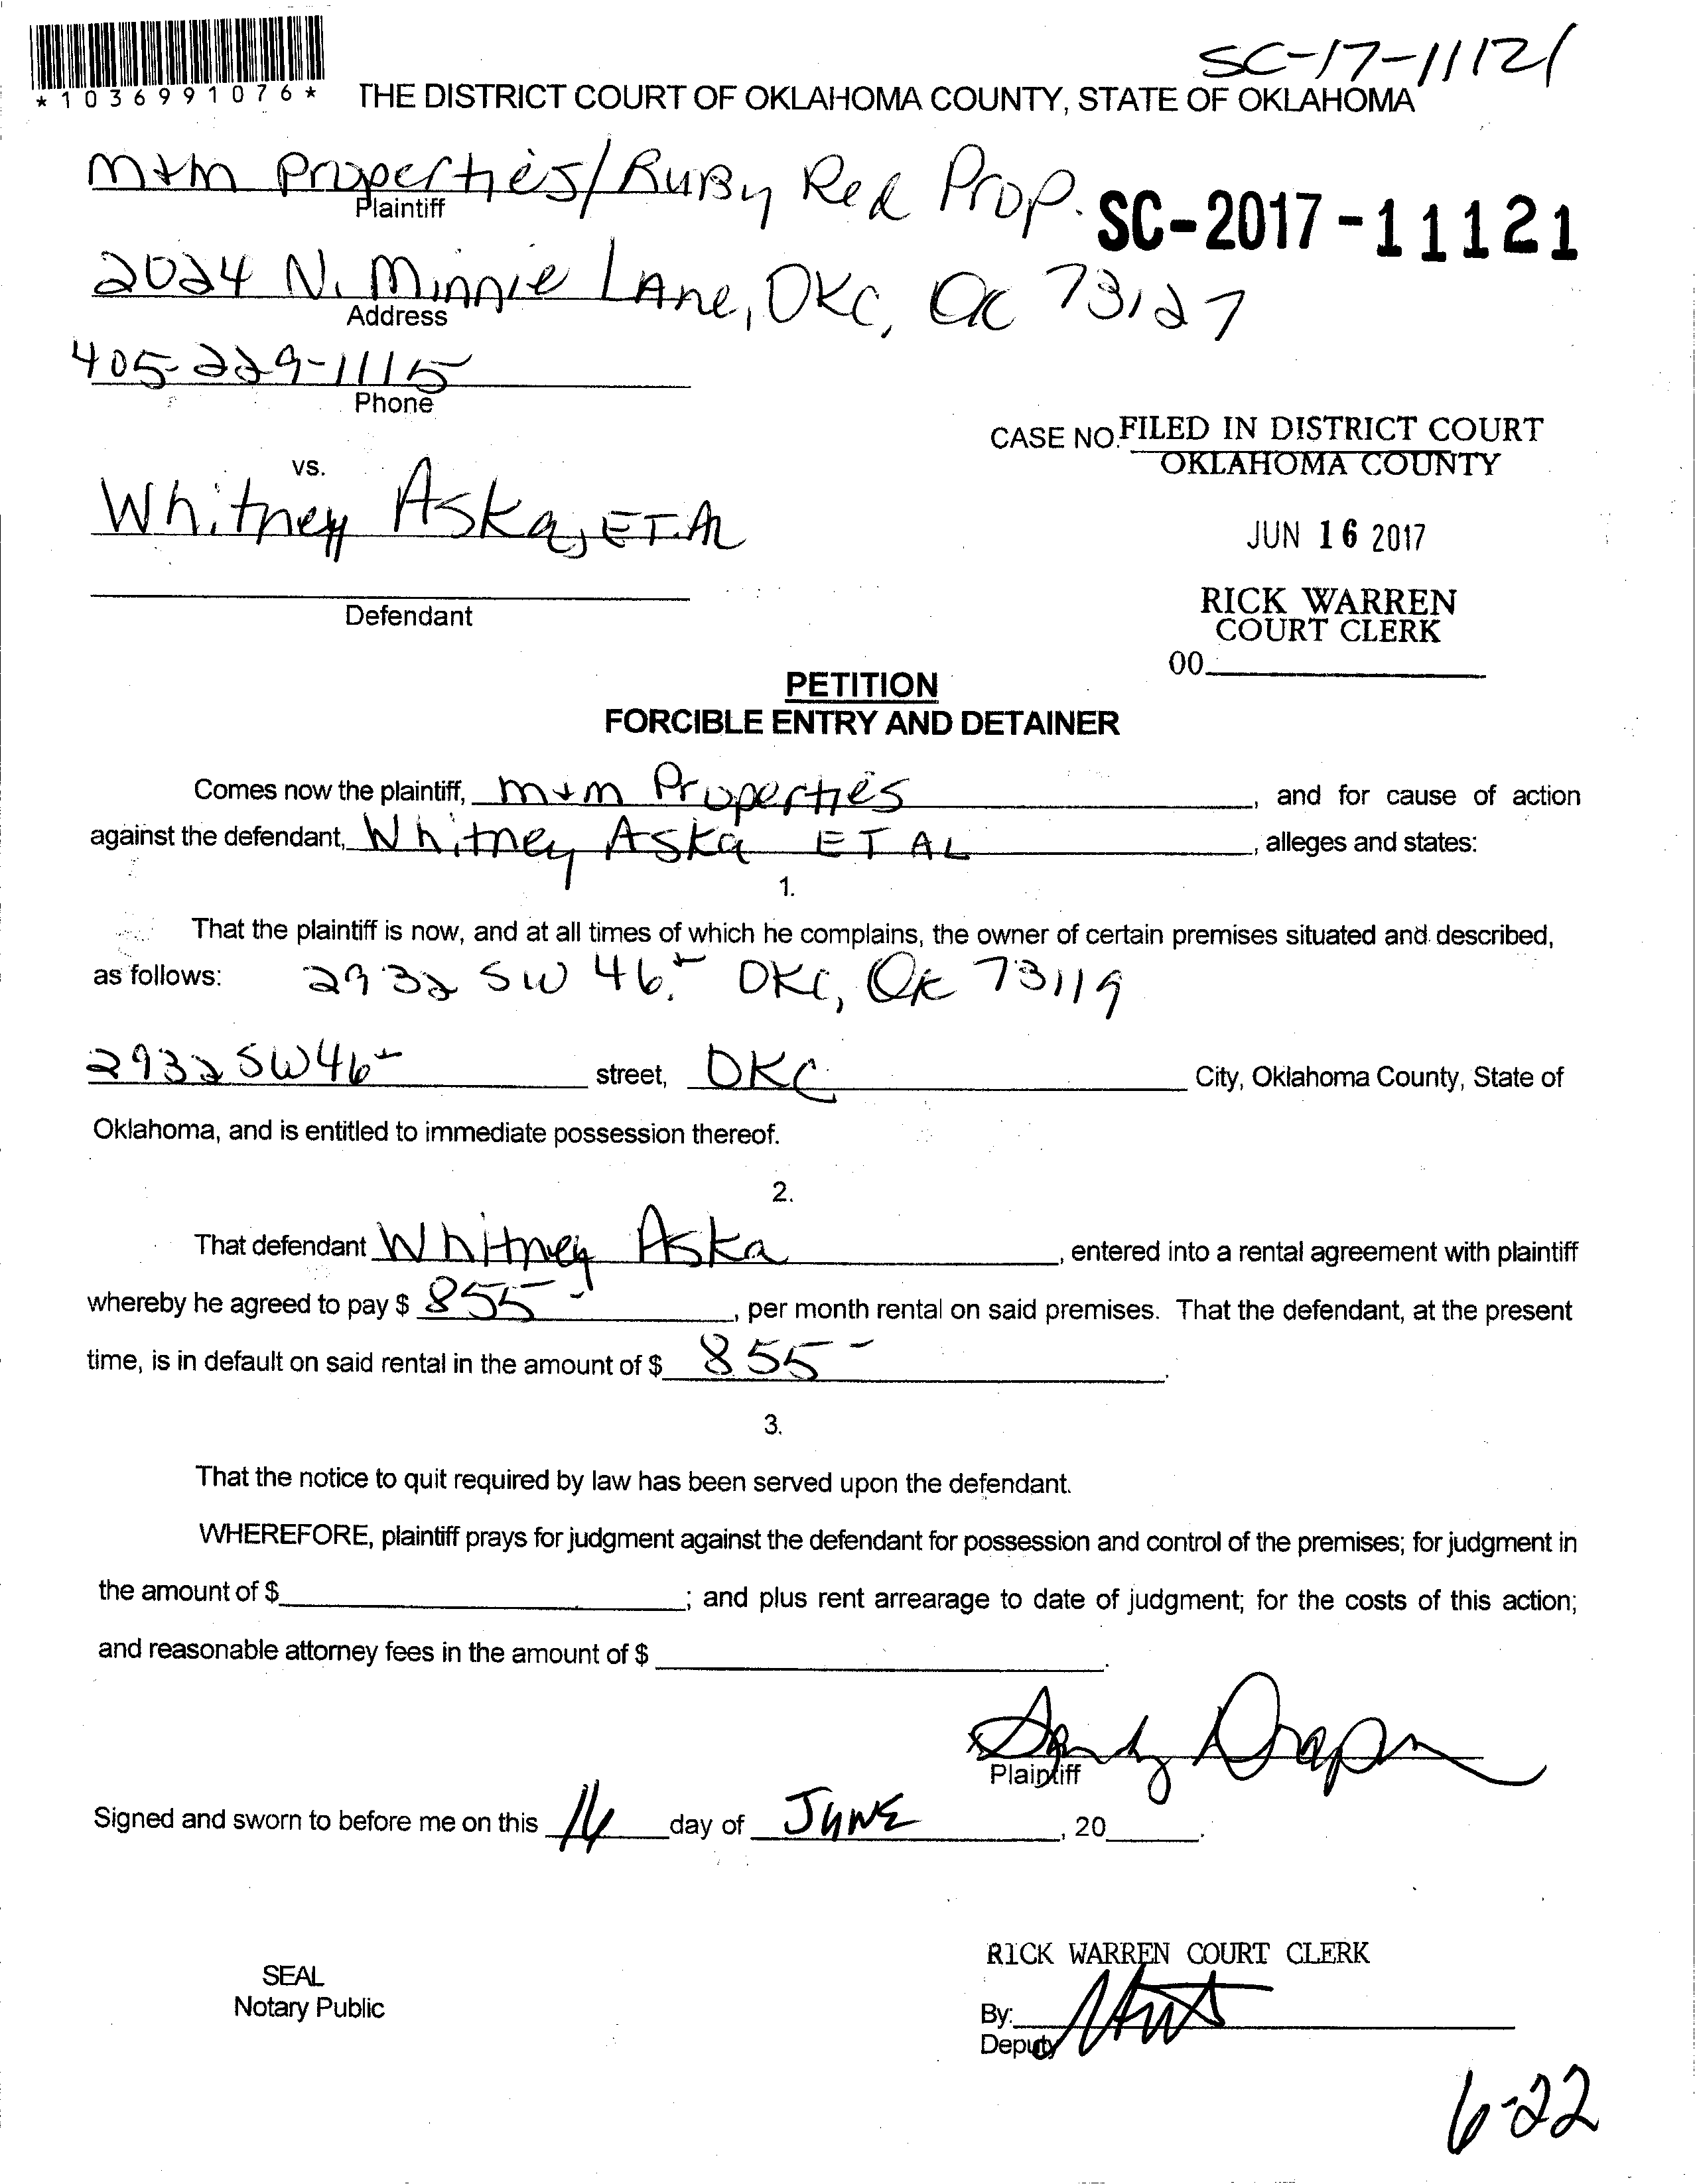 SC-17-11121
*1036991076*
THE DISTRICT COURT OF OKLAHOMA COUNTY, STATE OF OKLAHOMA
M+M Properties/RuBy Red Prop.
Plaintiff
SC-2017-11121
2024 N. Minnie LAne, OKC, OK 73127
Address
405-229-1115
Phone
CASE NO. FILED IN DISTRICT COURT
OKLAHOMA COUNTY
vs.
Whitney Aska, ET.AL
JUN 16 2017
Defendant
RICK WARREN
COURT CLERK
00
PETITION
FORCIBLE ENTRY AND DETAINER
Comes now the plaintiff, M+M Properties, and for cause of action
against the defendant, Whitney Aska ET AL, alleges and states:
1.
That the plaintiff is now, and at all times of which he complains, the owner of certain premises situated and described,
as follows: 2932 SW 46. OKC, OK 73119
2932 SW 46 street, OKC City, Oklahoma County, State of
Oklahoma, and is entitled to immediate possession thereof.
2.
That defendant Whitney Aska, entered into a rental agreement with plaintiff
whereby he agreed to pay $ 855-, per month rental on said premises. That the defendant, at the present
time, is in default on said rental in the amount of $ 855-.
3.
That the notice to quit required by law has been served upon the defendant.
WHEREFORE, plaintiff prays for judgment against the defendant for possession and control of the premises; for judgment in
the amount of $; and plus rent arrearage to date of judgment; for the costs of this action;
and reasonable attorney fees in the amount of $.
Plaintiff
Signed and sworn to before me on this 16 day of JUNE, 20.
RICK WARREN COURT CLERK
SEAL
Notary Public
By:
Deputy
6-22